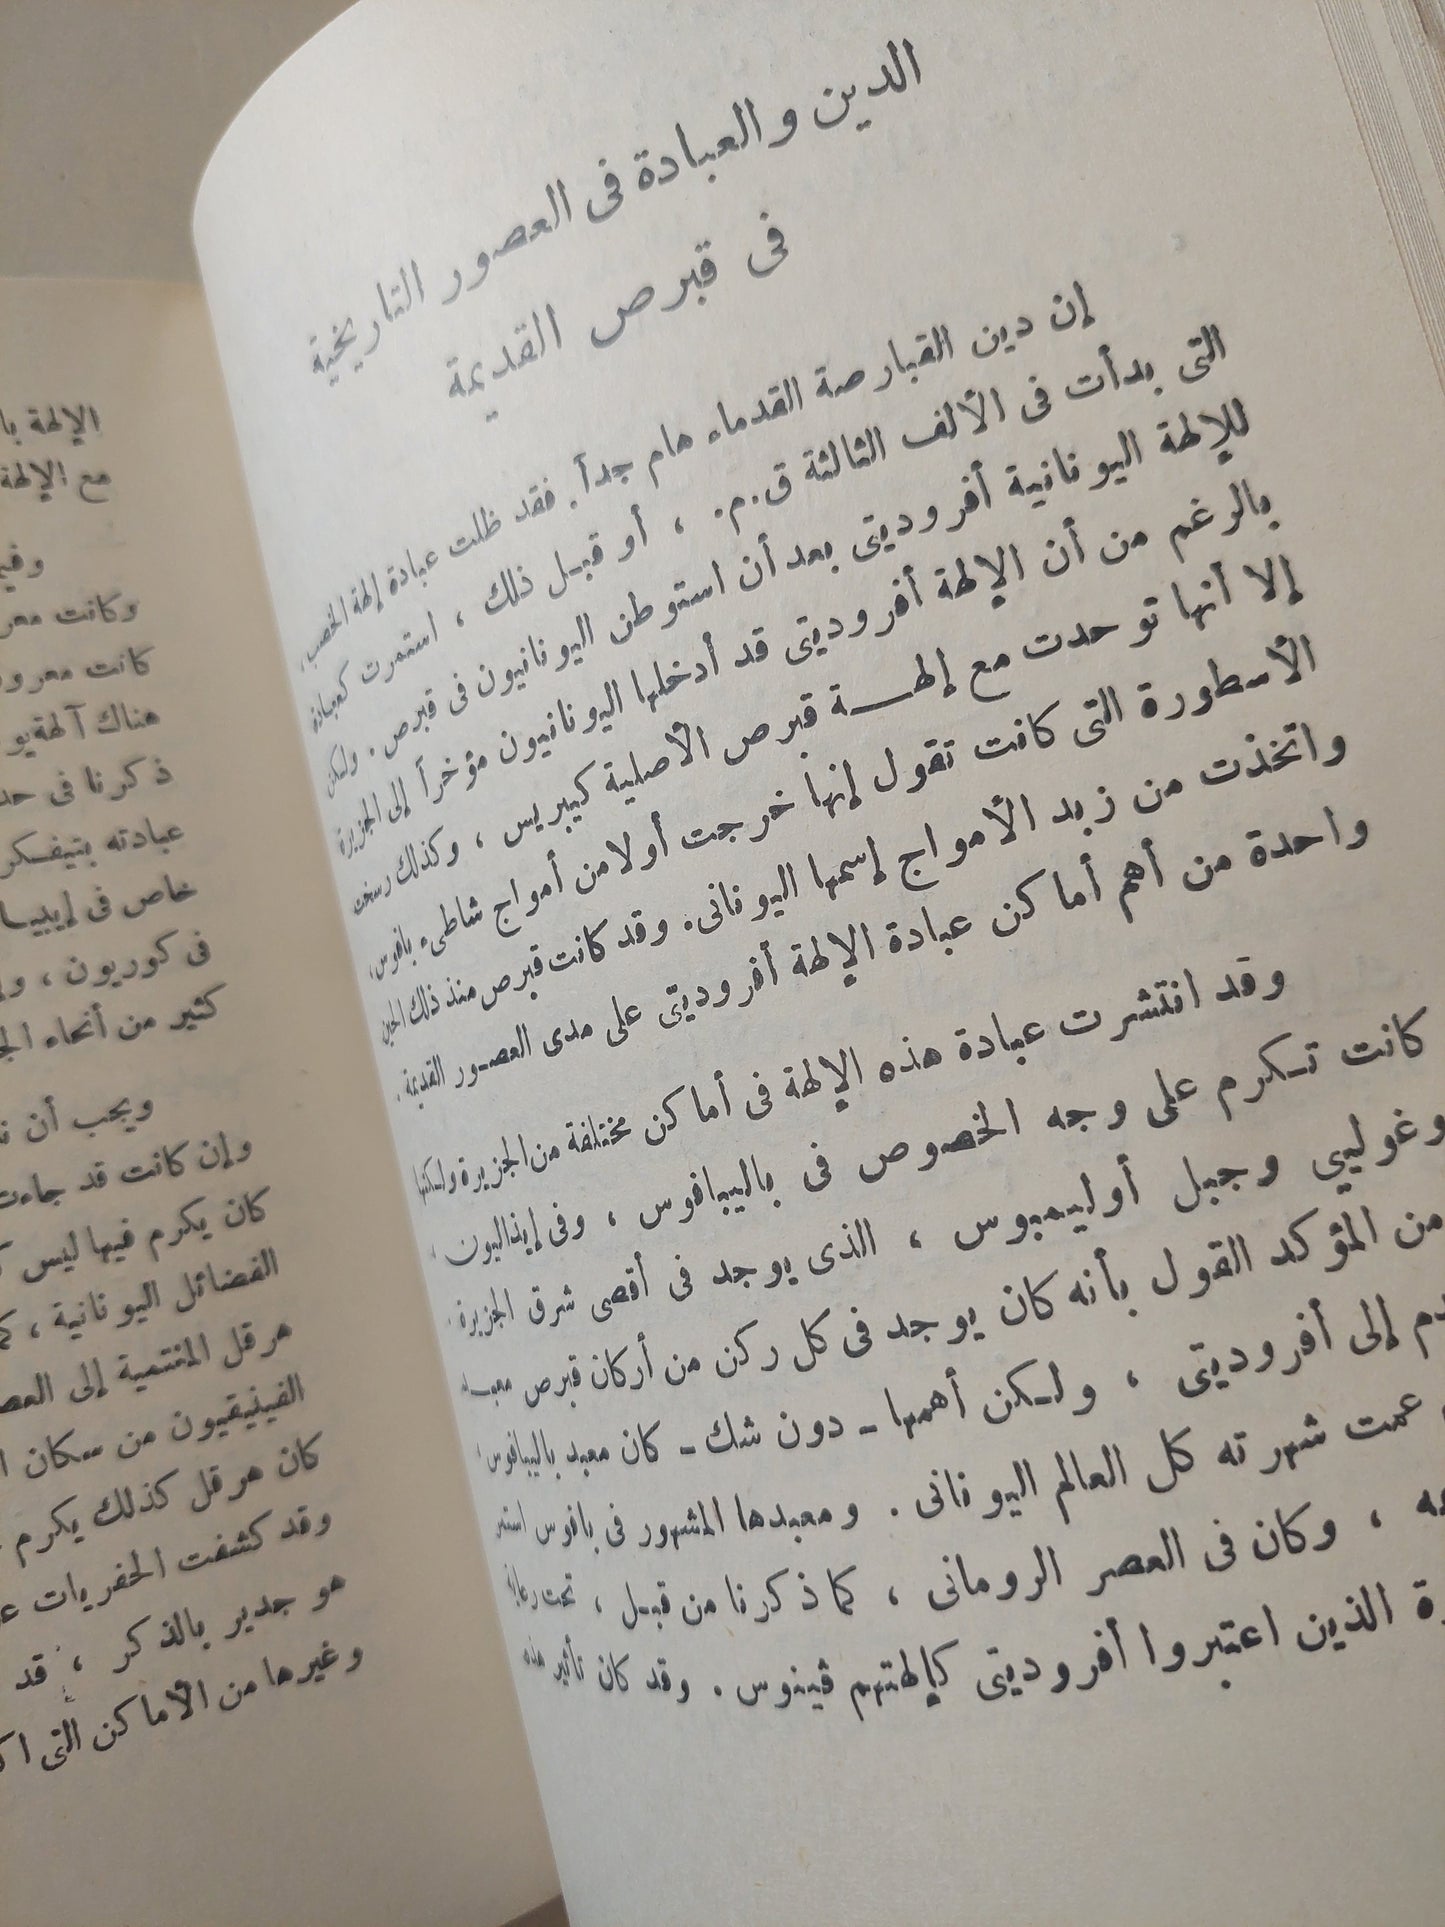 الدين والعبادة فى العصور التاريخية
فى قبرص القديمة
إن دين القبارصة القدماء هام جداً. فقد ظلت عبادة إلهة الخصب،
التى بدأت فى الألف الثالثة ق.م. ، أو قبل ذلك ، استمرت كعبادة
للإلهة اليونانية أفروديتى بعد أن استوطن اليونانيون فى قبرص. ولكن
بالرغم من أن الإلهة أفروديتى قد أدخلها اليونانيون مؤخراً إلى الجزيرة
إلا أنها توحدت مع إلهـــة قبرص الأصلية كيبريس ، وكذلك رسخت
الأسطورة التى كانت تقول إنها خرجت أولا من أمواج شاطىء بافوس،
واتخذت من زبد الأمواج إسمها اليونانى. وقد كانت قبرص منذ ذلك الحين
واحدة من أهم أماكن عبادة الإلهة أفروديتى على مدى العصور القديمة.
وقد انتشرت عبادة هذه الإلهة فى أماكن مختلفة من الجزيرة ولكنها
كانت تكرم على وجه الخصوص فى باليبافوس ، وفى إيذاليون ،
وغوليى وجبل أوليمبوس ، الذى يوجد فى أقصى شرق الجزيرة.
من المؤكد القول بأنه كان يوجد فى كل ركن من أركان قبرص معبد
إلى أفروديتى ، ولكن أهمها ـ دون شك ـ كان معبد باليبافوس
عمت شهرته كل العالم اليونانى . ومعبدها المشهور فى بافوس استمر
، وكان فى العصر الرومانى ، كما ذكرنا من قبل ، تحت رعاية
الذين اعتبروا أفروديتى كإلهتهم ڤينوس . وقد كان تأثير هذه
الإلهة
مع الإلهة
وكانت
كانت
هناك آلهة
ذكرنا فى
عبادته
خاص فى
فى كوريون ،
كثير من أنحاء
ويجب أن
وإن كانت قد جاءت
كان يكرم فيها ليس
الفضائل اليونانية ،
هرقل المنتمية إلى
الفينيقيون من سكان
كان هرقل كذلك يكرم
وقد كشفت الحفريات
هو جدير بالذكر ، قد
وغيرها من الأماكن التى